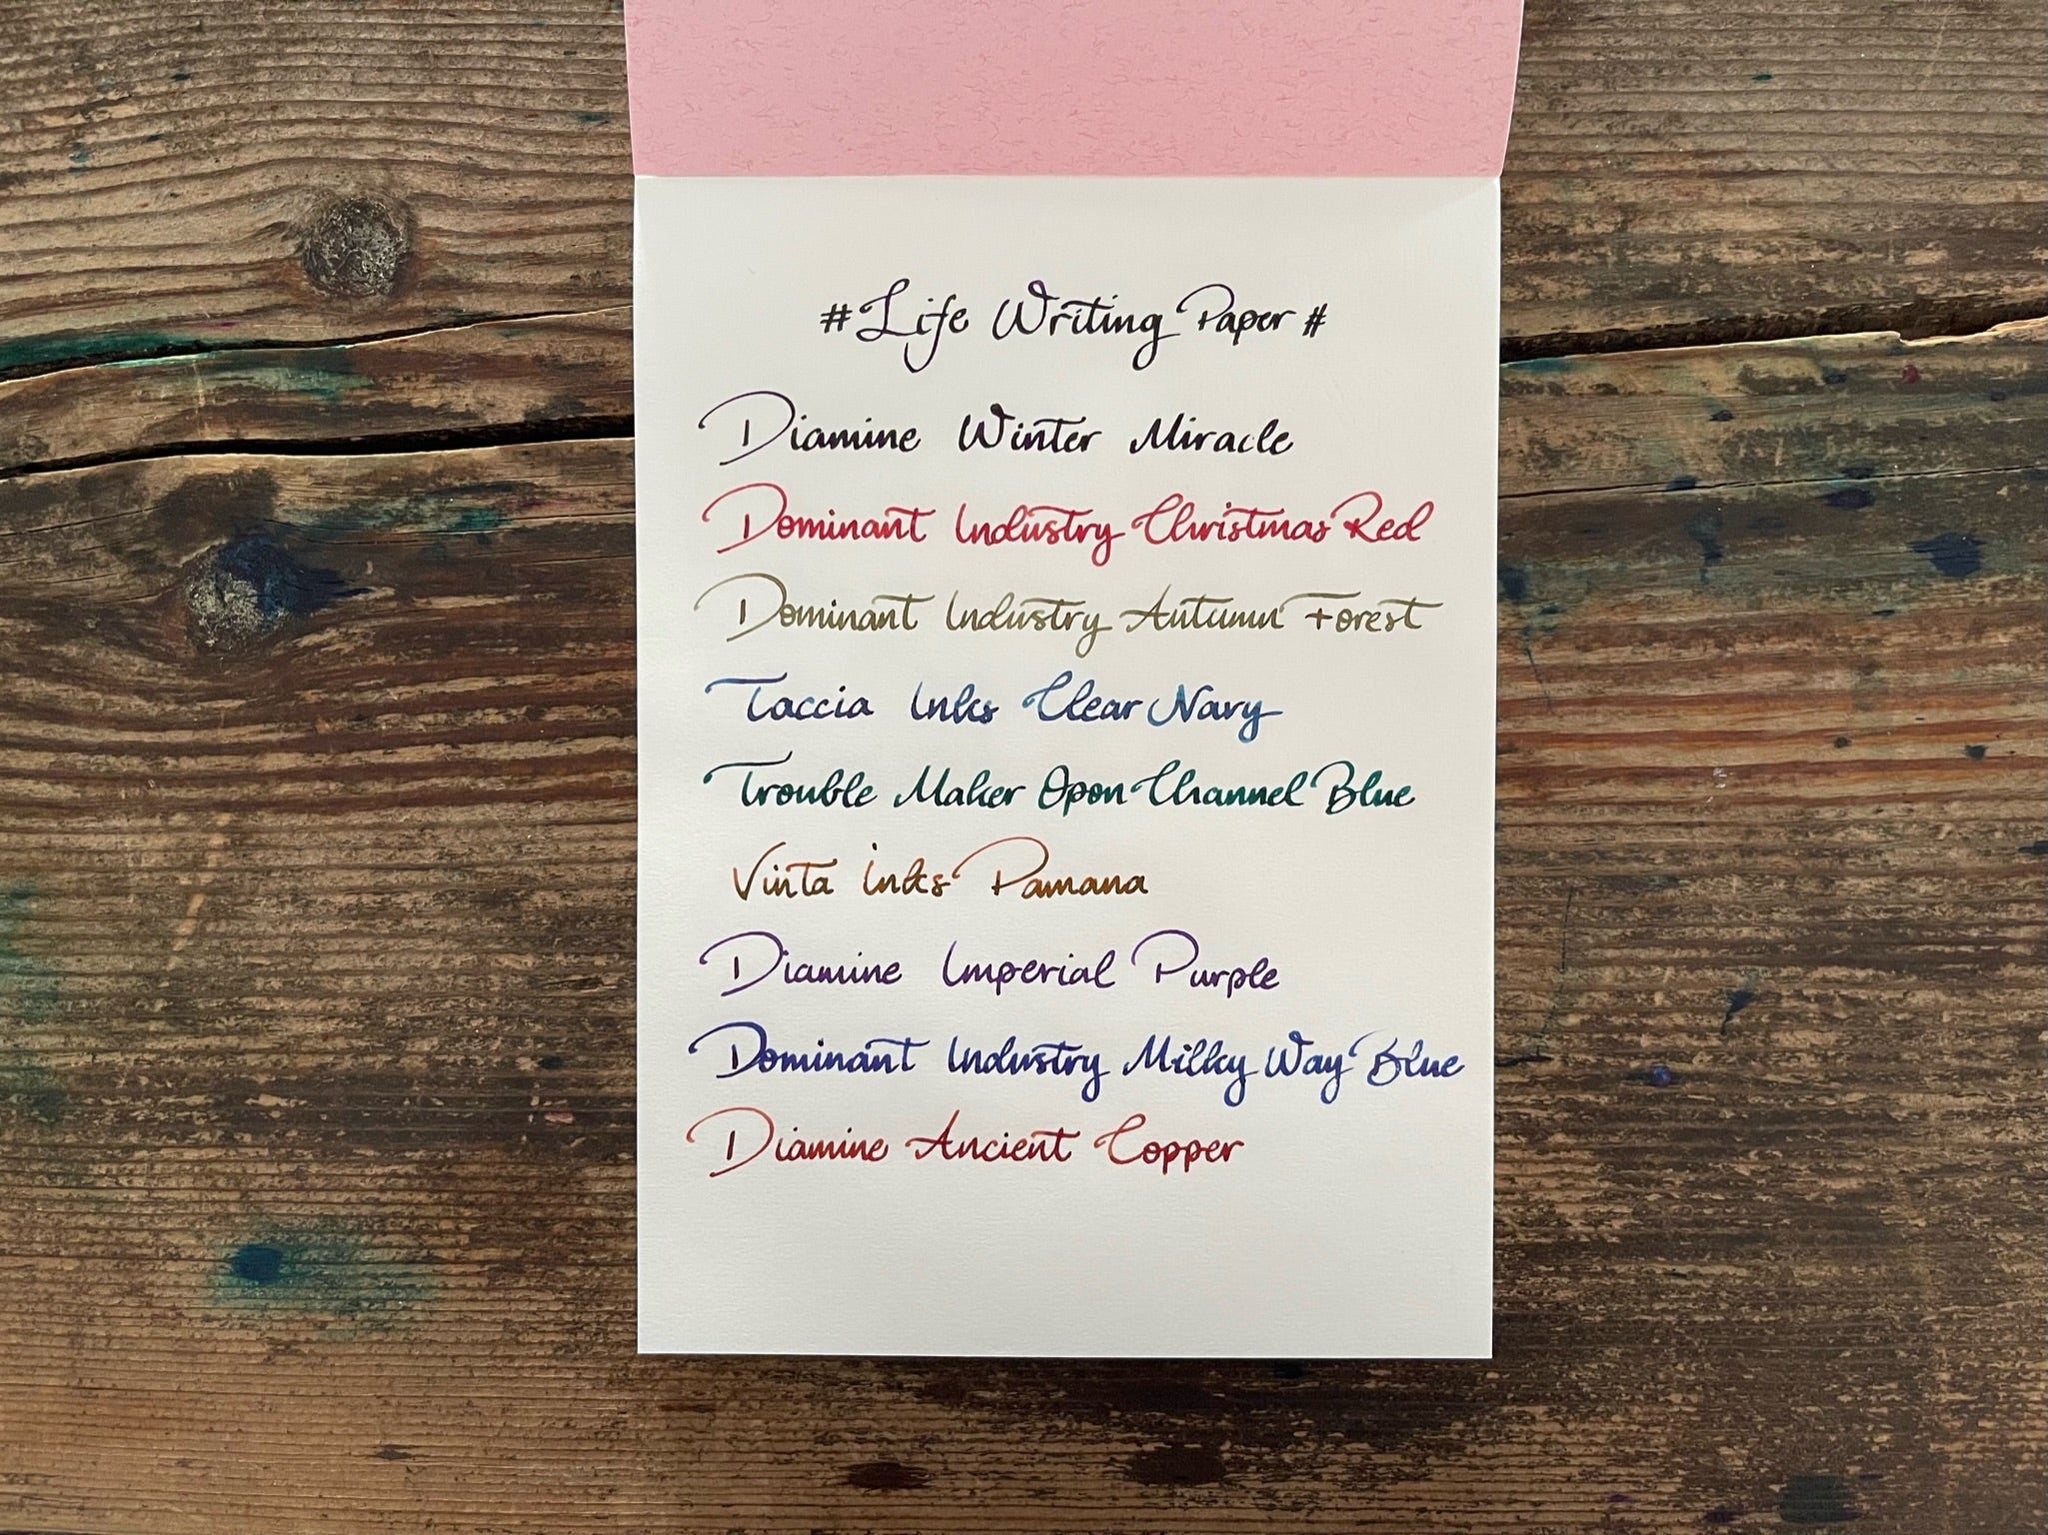 # Life Writing Paper #
Diamine Winter Miracle
Dominant Industry Christmas Red
Dominant Industry Autumn Forest
Taccia Inks Clear Navy
Trouble Maker Opon Channel Blue
Vinta inks Pamana
Diamine Imperial Purple
Dominant Industry Milky Way Blue
Diamine Ancient Copper